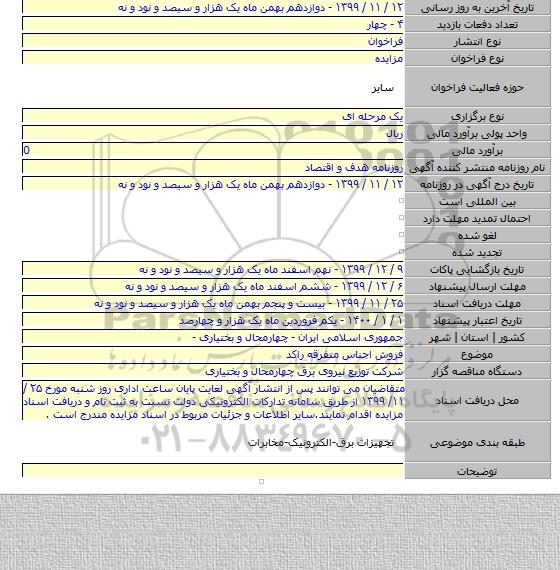 تاریخ آخرین به روز رسانی ۱۲ / ۱۱ / ۱۳۹۹ - دوازدهم بهمن ماه یک هزار و سیصد و نود و نه
تعداد دفعات بازدید ۴ - چهار
نوع انتشار فراخوان
نوع فراخوان مزایده
حوزه فعالیت فراخوان سایر
نوع برگزاری یک مرحله ای
واحد پولی برآورد مالی ریال
برآورد مالی 0
نام روزنامه منتشر کننده آگهی روزنامه هدف و اقتصاد
تاریخ درج آگهی در روزنامه ۱۲ / ۱۱ / ۱۳۹۹ - دوازدهم بهمن ماه یک هزار و سیصد و نود و نه
بین المللی است
احتمال تمدید مهلت دارد
لغو شده
تجدید شده
تاریخ بازگشایی پاکات ۹ / ۱۲ / ۱۳۹۹ - نهم اسفند ماه یک هزار و سیصد و نود و نه
مهلت ارسال پیشنهاد ۶ / ۱۲ / ۱۳۹۹ - ششم اسفند ماه یک هزار و سیصد و نود و نه
مهلت دریافت اسناد ۲۵ / ۱۱ / ۱۳۹۹ - بیست و پنجم بهمن ماه یک هزار و سیصد و نود و نه
تاریخ اعتبار پیشنهاد ۱ / ۱ / ۱۴۰۰ - یکم فروردین ماه یک هزار و چهارصد
کشور | استان | شهر جمهوری اسلامی ایران - چهارمحال و بختیاری -
موضوع فروش اجناس متفرقه راکد
دستگاه مناقصه گزار شرکت توزیع نیروی برق چهارمحال و بختیاری
محل دریافت اسناد متقاضیان می توانند پس از انتشار آگهی لغایت پایان ساعت اداری روز شنبه مورخ ۲۵ /
۱۱/ ۱۳۹۹ از طریق سامانه تدارکات الکترونیکی دولت نسبت به ثبت نام و دریافت اسناد
مزایده اقدام نمایند.سایر اطلاعات و جزئیات مربوط در اسناد مزایده مندرج است .
طبقه بندی موضوعی تجهیزات برق-الکترونیک-مخابرات
توضیحات
۰۲۱-۸۸۳۴۹۶۷۰-۵